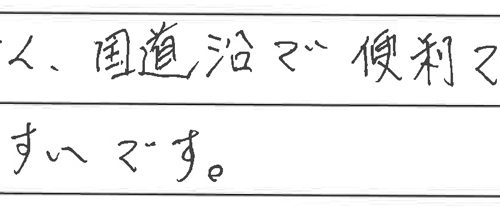 、国道沿で便利で
すいです。